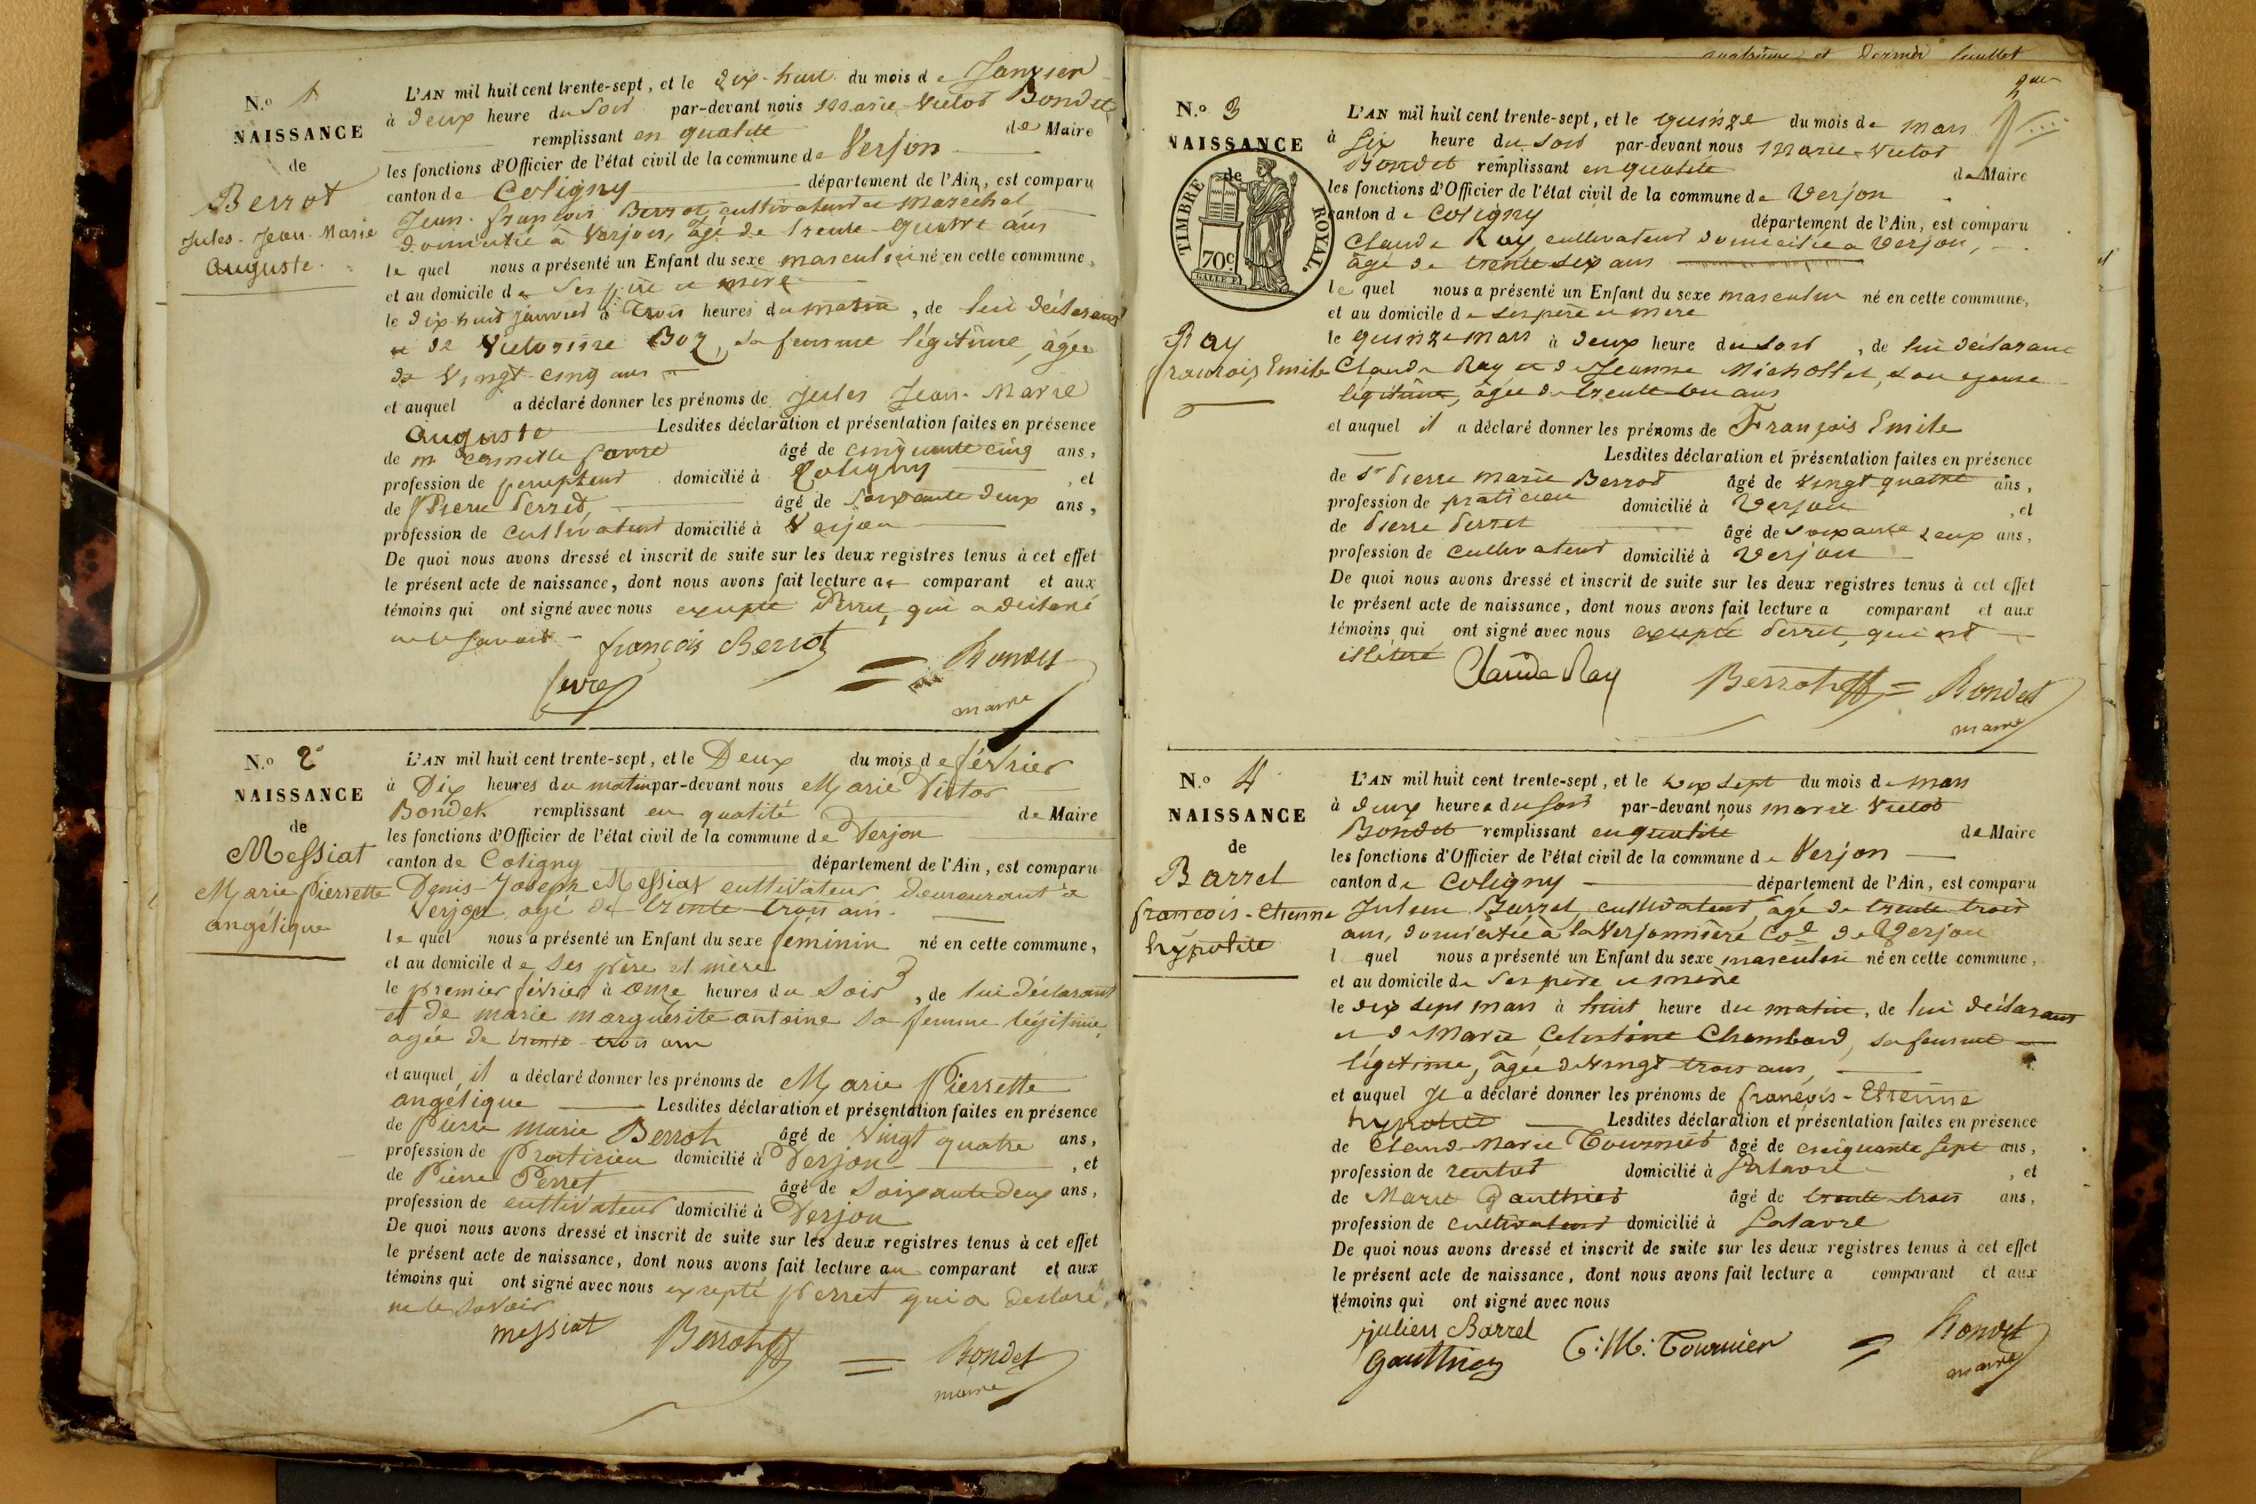 N.o 1
NAISSANCE
de
Berrot
Jules-Jean-Marie
Auguste.
L'AN mil huit cent trente-sept, et le dix-huit du mois de Janvier
à deux heure du soir par-devant nous Marie-Victor Bondet
remplissant en qualité de Maire
les fonctions d'Officier de l'état civil de la commune de Verjon
canton de Coligny département de l'Ain, est comparu
Jean-françois Berrot, cultivateur et maréchal
domicilié à Verjon, âgé de trente-quatre ans
le quel nous a présenté un Enfant du sexe masculin né en cette commune,
et au domicile de ses père et mère
le dix-huit janvier à trois heures du matin, de lui déclarant
et de Victorine Boz, sa femme légitime, âgée
de vingt-cinq ans
et auquel a déclaré donner les prénoms de Jules Jean-Marie
Auguste Lesdites déclaration et présentation faites en présence
de mr Camille favre âgé de cinquante cinq ans,
profession de percepteur domicilié à Coligny, et
de Pierre Perret, âgé de soixante deux ans,
profession de cultivateur domicilié à Verjon
De quoi nous avons dressé et inscrit de suite sur les deux registres tenus à cet effet
le présent acte de naissance, dont nous avons fait lecture au comparant et aux
témoins qui ont signé avec nous excepté Perret, qui a déclaré
ne le savoir
françois Berrot
favre
Bondet
maire
N.o 2
NAISSANCE
de
Messiat
Marie Pierrette
angélique
L'AN mil huit cent trente-sept, et le Deux du mois de février
à Dix heures du matin par-devant nous Marie Victor
Bondet remplissant en qualité de Maire
les fonctions d'Officier de l'état civil de la commune de Verjon
canton de Coligny département de l'Ain, est comparu
Denis-Joseph Messiat cultivateur demeurant à
Verjon agé de trente-trois ans.
le quel nous a présenté un Enfant du sexe feminin né en cette commune,
et au domicile de ses père et mère
le premier février à onze heures du soir, de lui déclarant
et de marie marguerite antoine sa femme légitime
agée de trente-trois ans
et auquel il a déclaré donner les prénoms de Marie Pierrette
angélique Lesdites déclaration et présentation faites en présence
de Pierre marie Berrot âgé de vingt quatre ans,
profession de Praticien domicilié à Verjon, et
de Pierre Perret âgé de soixante deux ans,
profession de cultivateur domicilié à Verjon
De quoi nous avons dressé et inscrit de suite sur les deux registres tenus à cet effet
le présent acte de naissance, dont nous avons fait lecture au comparant et aux
témoins qui ont signé avec nous excepté perret qui a declaré
ne le savoir
messiat Berrot
Bondet
maire
quatrième et dernier feuillet
N.o 3
NAISSANCE
de
TIMBRE ROYAL.
70c
Ray
francois Emile
L'AN mil huit cent trente-sept, et le quinze du mois de mars
à six heure du soir par-devant nous Marie-Victor
Bondet remplissant en qualité de Maire
les fonctions d'Officier de l'état civil de la commune de Verjon
canton de Coligny département de l'Ain, est comparu
Claude Ray, cultivateur domicilié à Verjon,
âgé de trente six ans
le quel nous a présenté un Enfant du sexe masculin né en cette commune,
et au domicile de ses père et mère
le quinze mars à deux heure du soir, de lui déclarant
Claude Ray et de Jeanne Michollet, son épouse
légitime, âgée de trente un ans
et auquel il a déclaré donner les prénoms de François Emile
Lesdites déclaration et présentation faites en présence
de Sr Pierre marie Berrot âgé de vingt quatre ans,
profession de praticien domicilié à Verjon, et
de Pierre Perret âgé de soixante deux ans,
profession de cultivateur domicilié à Verjon
De quoi nous avons dressé et inscrit de suite sur les deux registres tenus à cet effet
le présent acte de naissance, dont nous avons fait lecture a comparant et aux
témoins qui ont signé avec nous excepté Perret, qui est
illétéré
Claude Ray Berrot Bondet
maire
N.o 4
NAISSANCE
de
Barrel
francois-Etienne
hypolite
L'AN mil huit cent trente-sept, et le dix sept du mois de mars
à deux heures du soir par-devant nous marie Victor
Bondet remplissant en qualité de Maire
les fonctions d'Officier de l'état civil de la commune de Verjon
canton de Coligny département de l'Ain, est comparu
Julien Barrel, cultivateur, âgé de trente trois
ans, domicilié à la Verjonnière Cne de Verjon
l quel nous a présenté un Enfant du sexe masculin né en cette commune,
et au domicile de ses père et mère
le dix sept mars à huit heure du matin, de lui déclarant
et de Marie Celestine Chambard, sa femme
légitime, âgée de vingt trois ans,
et auquel Il a déclaré donner les prénoms de françois-Etienne
hypolite Lesdites déclaration et présentation faites en présence
de Claude-Marie Tournier âgé de cinquante sept ans,
profession de rentier domicilié à Salavre, et
de Marie Gauthier âgé de trente-trois ans,
profession de cultivateur domicilié à Salavre
De quoi nous avons dressé et inscrit de suite sur les deux registres tenus à cet effet
le présent acte de naissance, dont nous avons fait lecture a comparant et aux
témoins qui ont signé avec nous
julien Barrel C: M: Tournier Bondet
Gauthier maire